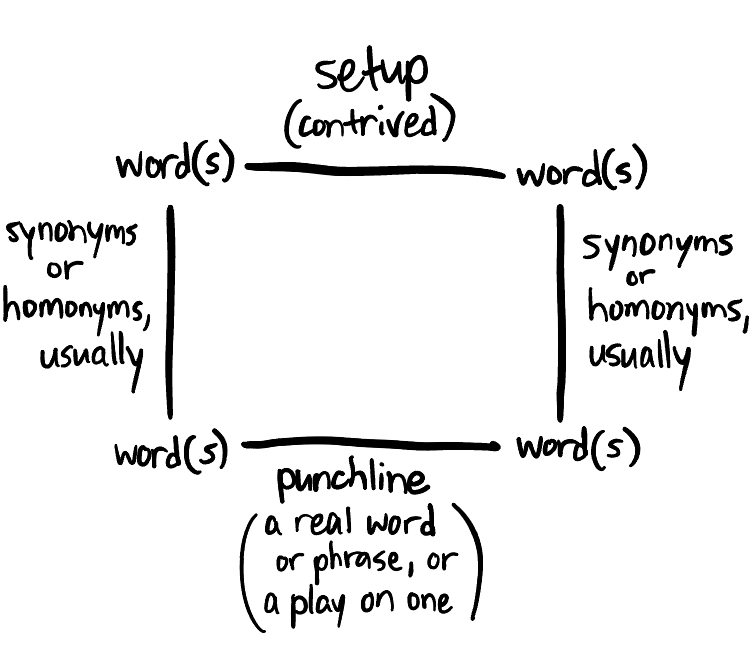 setup
(contrived)
word(s)
word(s)
synonyms
or
homonyms,
usually
synonyms
or
homonyms,
usually
word(s)
word(s)
punchline
(a real word
or phrase, or
a play on one)